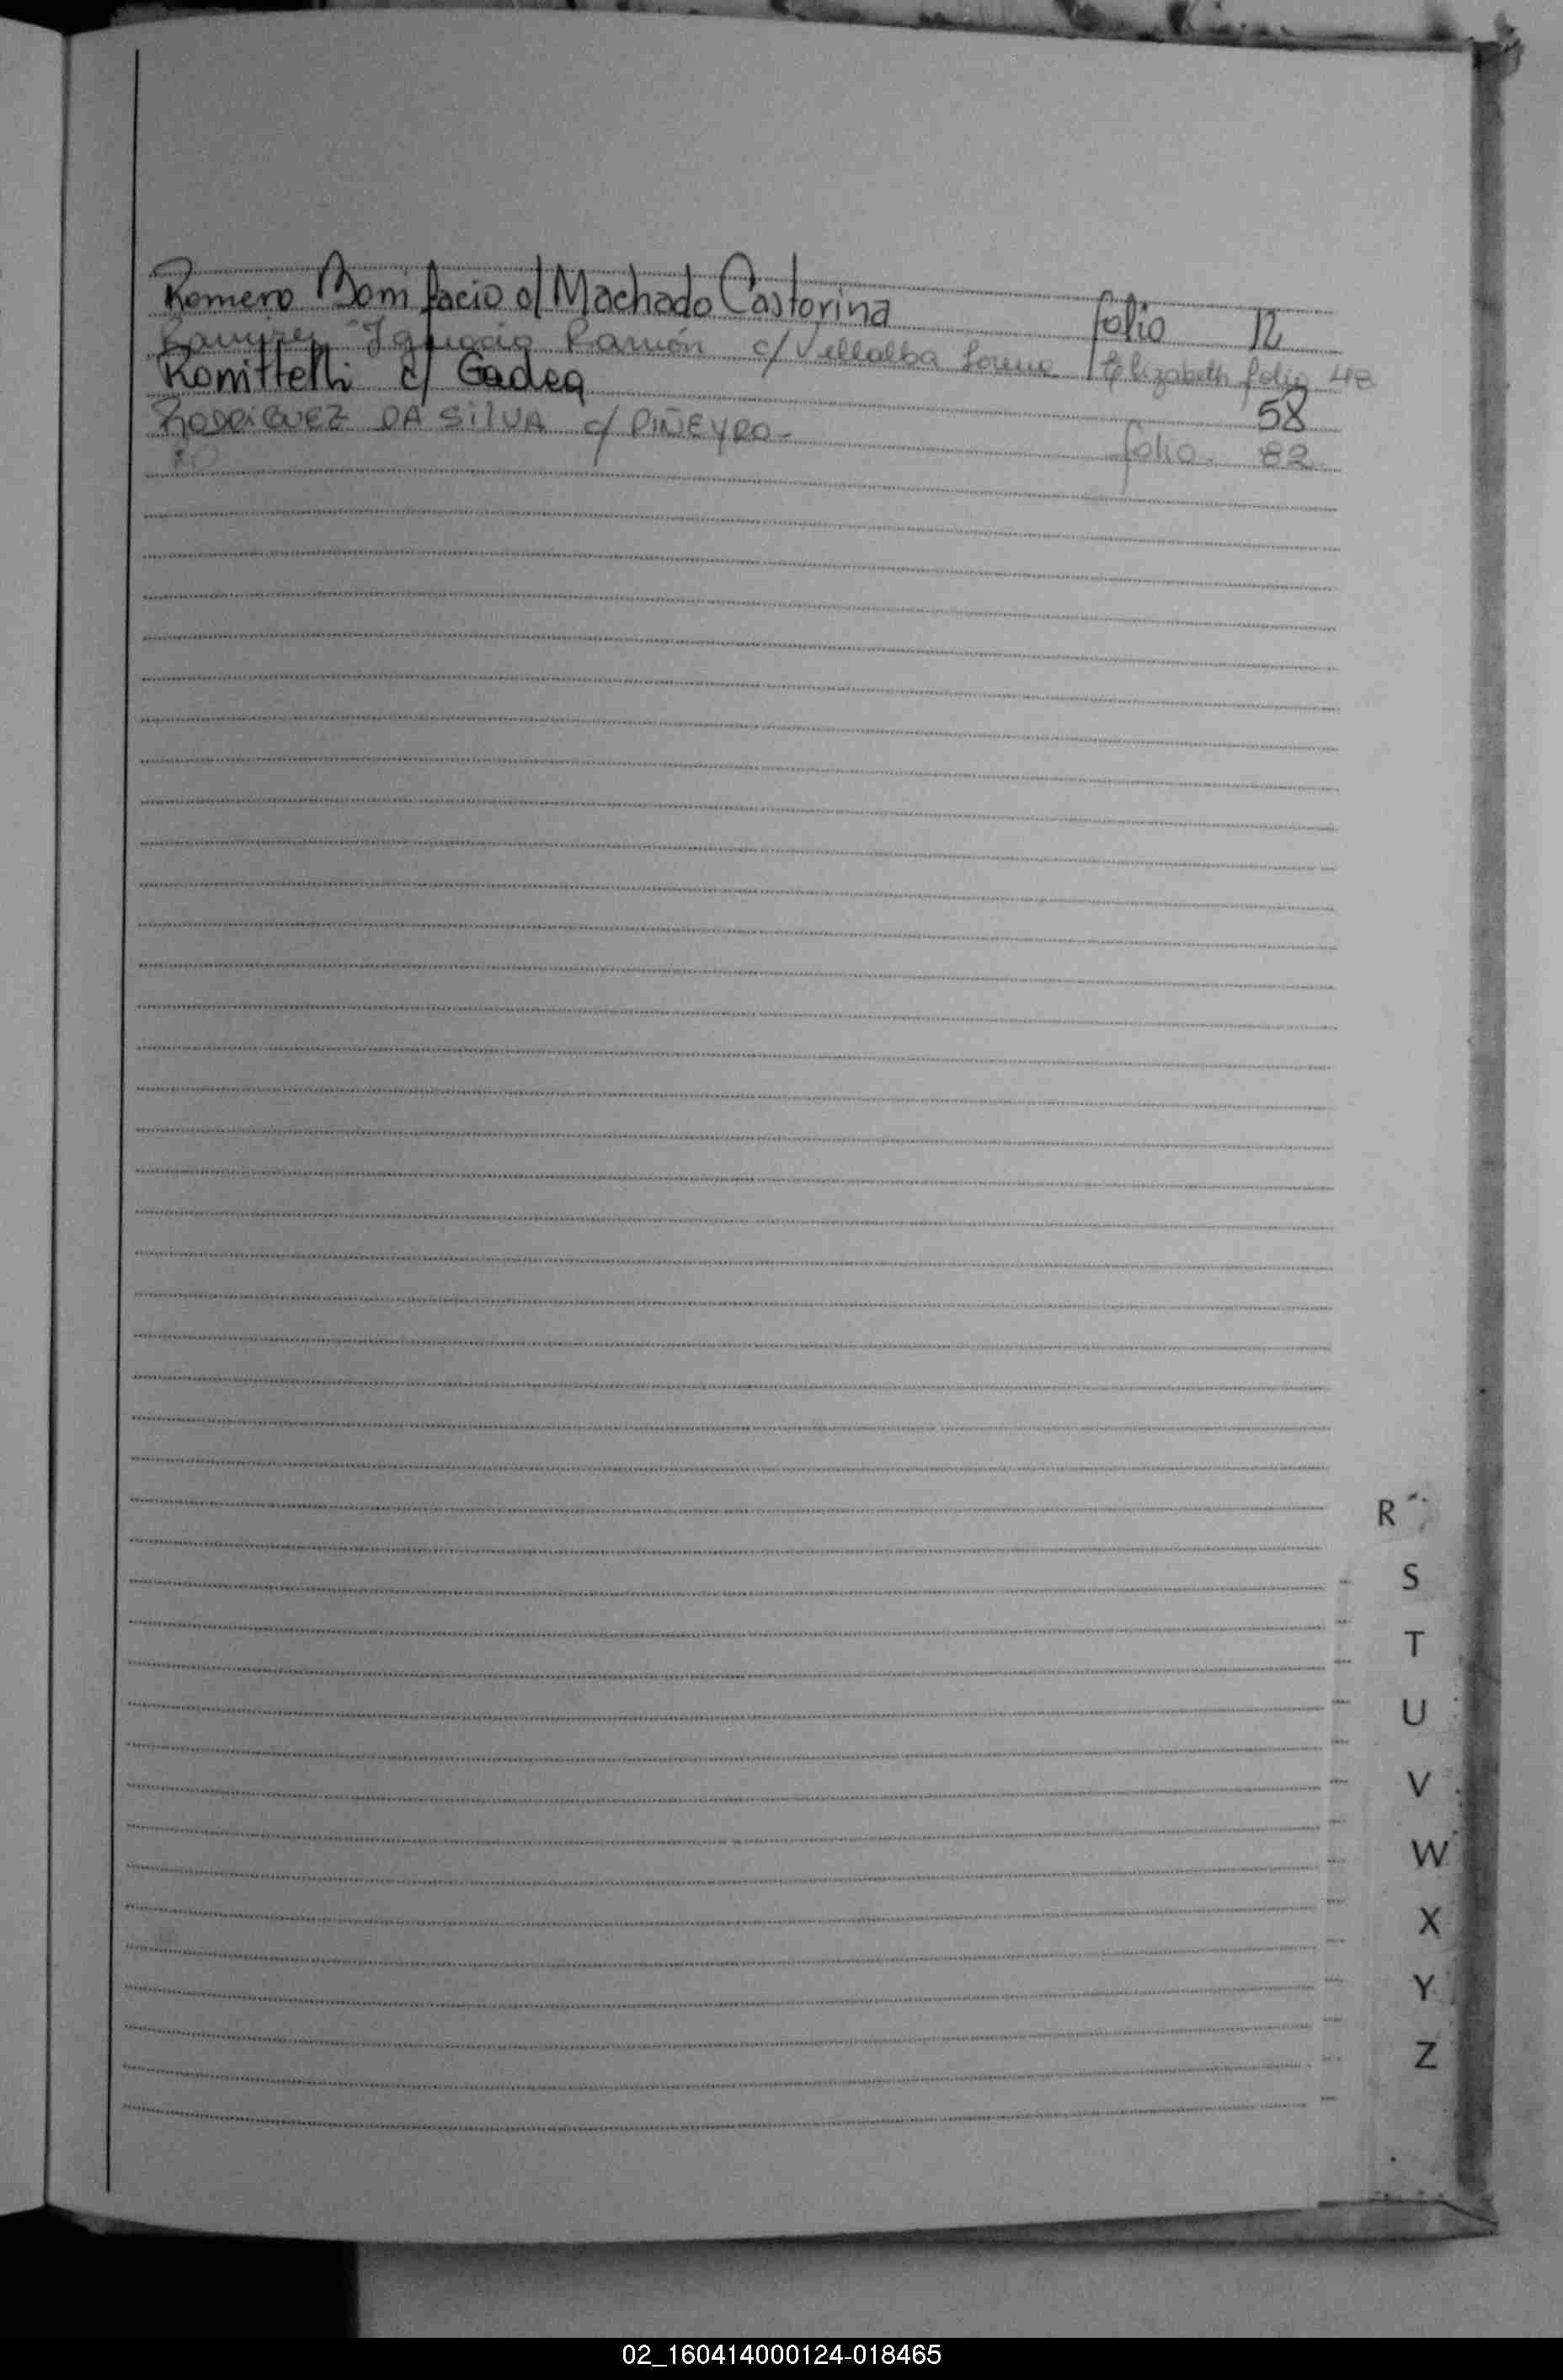 Romero Bonifacio c/ Machado Castorina folio 12
Ramirez Ignacio Ramón c/ Villalba Lorena Elizabeth folio 48
Romittelli c/ Gadea 58
RODRIGUEZ DA SILVA c/ PIÑEYRO- folio- 82.
R
S
T
U
V
W
X
Y
Z
02_160414000124-018465